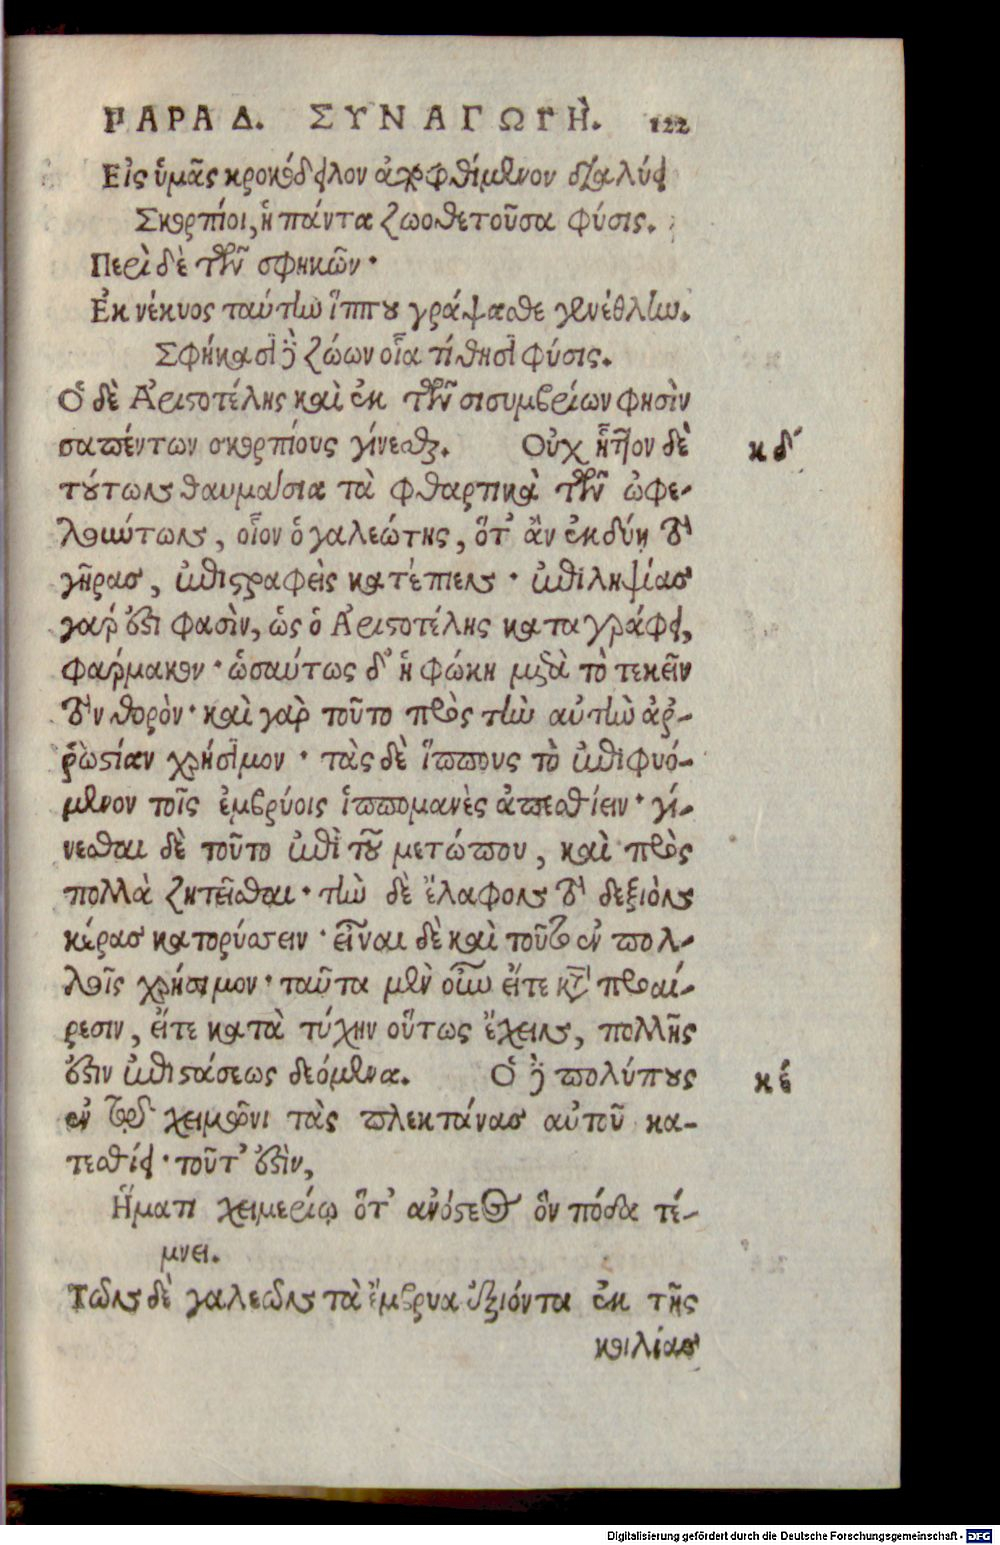 ΠΑΡΑΔ. ΣΥΝΑΓΩΓῊ. 122
Εἰς ὑμᾶς κροκόδειλον ἀποφθίμενον διαλύει
Σκορπίοι, ἡ πάντα ζωοθετοῦσα φύσις.
Περὶ δὲ τῶν σφηκῶν·
Ἐκ νέκυος ταύτην ἵππου γράψασθε γενέθλην.
Σφήκας· ἴδε ζώων οἷα τίθησι φύσις.
Ὁ δὲ Ἀριστοτέλης καὶ ἐκ τῶν σισυμβρίων φησὶν
σαπέντων σκορπίους γίνεσθαι. Οὐχ ἧττον δὲ
κδ́
τούτων θαυμάσια τὰ φθαρτικὰ τῶν ὠφε-
λούντων, οἷον ὁ γαλεώτης, ὅτ' ἂν ἐκδύῃ τὸ
γῆρας, ἐπιστραφεὶς κατέπιεν· ἐπιληψίας
γάρ ἐστι φασὶν, ὡς ὁ Ἀριστοτέλης καταγράφει,
φάρμακον· ὡσαύτως δ' ἡ φώκη μετὰ τὸ τεκεῖν
τὸν θορὸν· καὶ γὰρ τοῦτο πρὸς τὴν αὐτὴν ἀῤ-
ῥωστίαν χρήσιμον· τὰς δὲ ἵππους τὸ ἐπιφυό-
μενον τοῖς ἐμβρύοις ἱππομανὲς ἀπεσθίειν· γί-
νεσθαι δὲ τοῦτο ἐπὶ τοῦ μετώπου, καὶ πρὸς
πολλὰ ζητεῖσθαι· τὴν δὲ ἔλαφον τὸ δεξιὸν
κέρας κατορύσσειν· εἶναι δὲ καὶ τοῦτο ἐν πολ-
λοῖς χρήσιμον· ταῦτα μὲν οὖν εἴτε κατὰ προαί-
ρεσιν, εἴτε κατὰ τύχην οὕτως ἔχειν, πολλῆς
ἐστιν ἐπιστάσεως δεόμενα. Ὁ δὲ πολύπους
κέ
ἐν τῷ χειμῶνι τὰς πλεκτάνας αὐτοῦ κα-
τεσθίει· τοῦτ' ἐστὶν,
Ἤματι χειμερίῳ ὅτ' ἀνόστεος ὃν πόδα τέ-
μνει.
Τῶν δὲ γαλεῶν τὰ ἔμβρυα ἐξιόντα ἐκ τῆς
κοιλίας
Digitalisierung gefördert durch die Deutsche Forschungsgemeinschaft - DFG